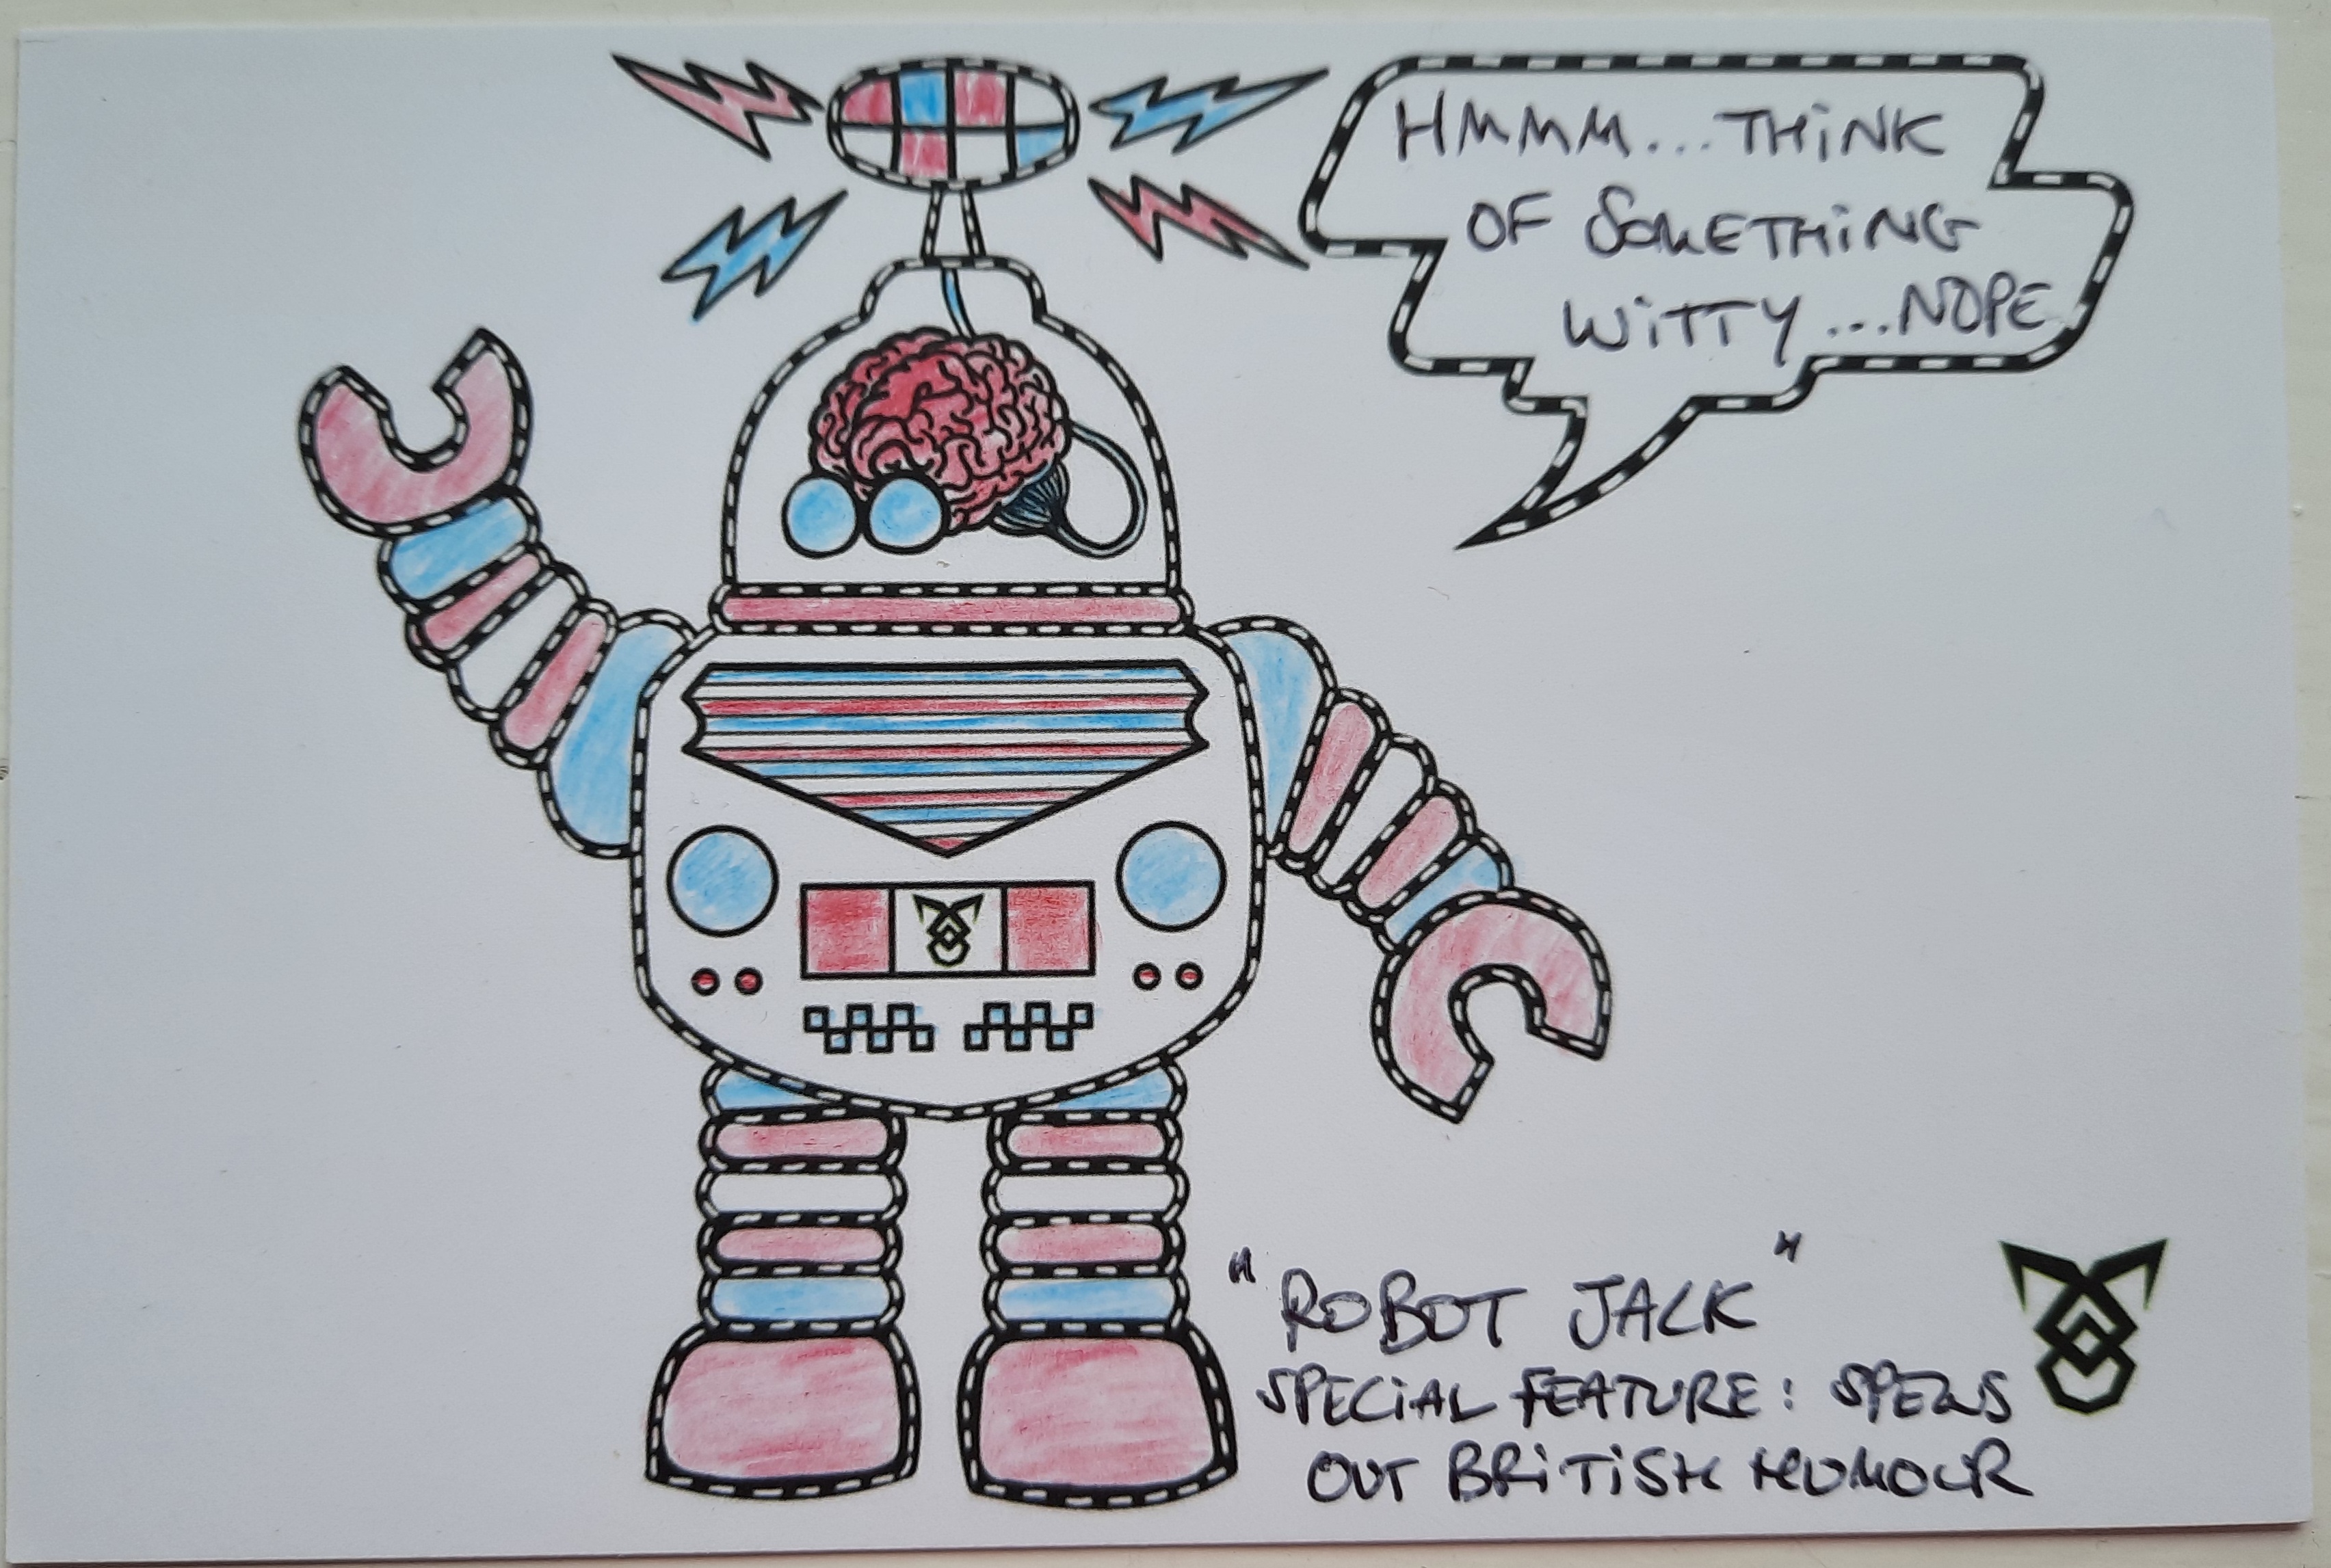 HMMM...THINK
OF SOMETHING
WITTY...NOPE
"ROBOT JACK"
SPECIAL FEATURE: SPEWS
OUT BRITISH HUMOUR